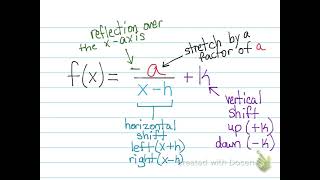 reflection over
the x-axis
stretch by a
factor of a
f(x) = - a/(x-h) + k
horizontal
shift
left (x+h)
right (x-h)
vertical
shift
up (+k)
down (-k)
Created with Doceri